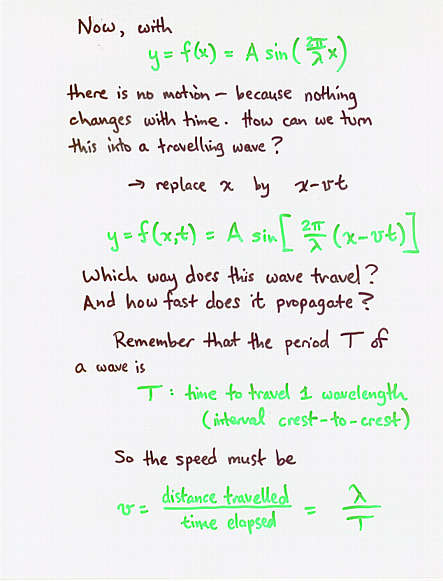 Now, with
y = f(x) = A sin(2π/λ x)
there is no motion – because nothing
changes with time. How can we turn
this into a travelling wave?
→ replace x by x-vt
y = f(x,t) = A sin[2π/λ (x-vt)]
Which way does this wave travel?
And how fast does it propagate?
Remember that the period T of
a wave is
T : time to travel 1 wavelength
(interval crest-to-crest)
So the speed must be
v = distance travelled / time elapsed = λ / T